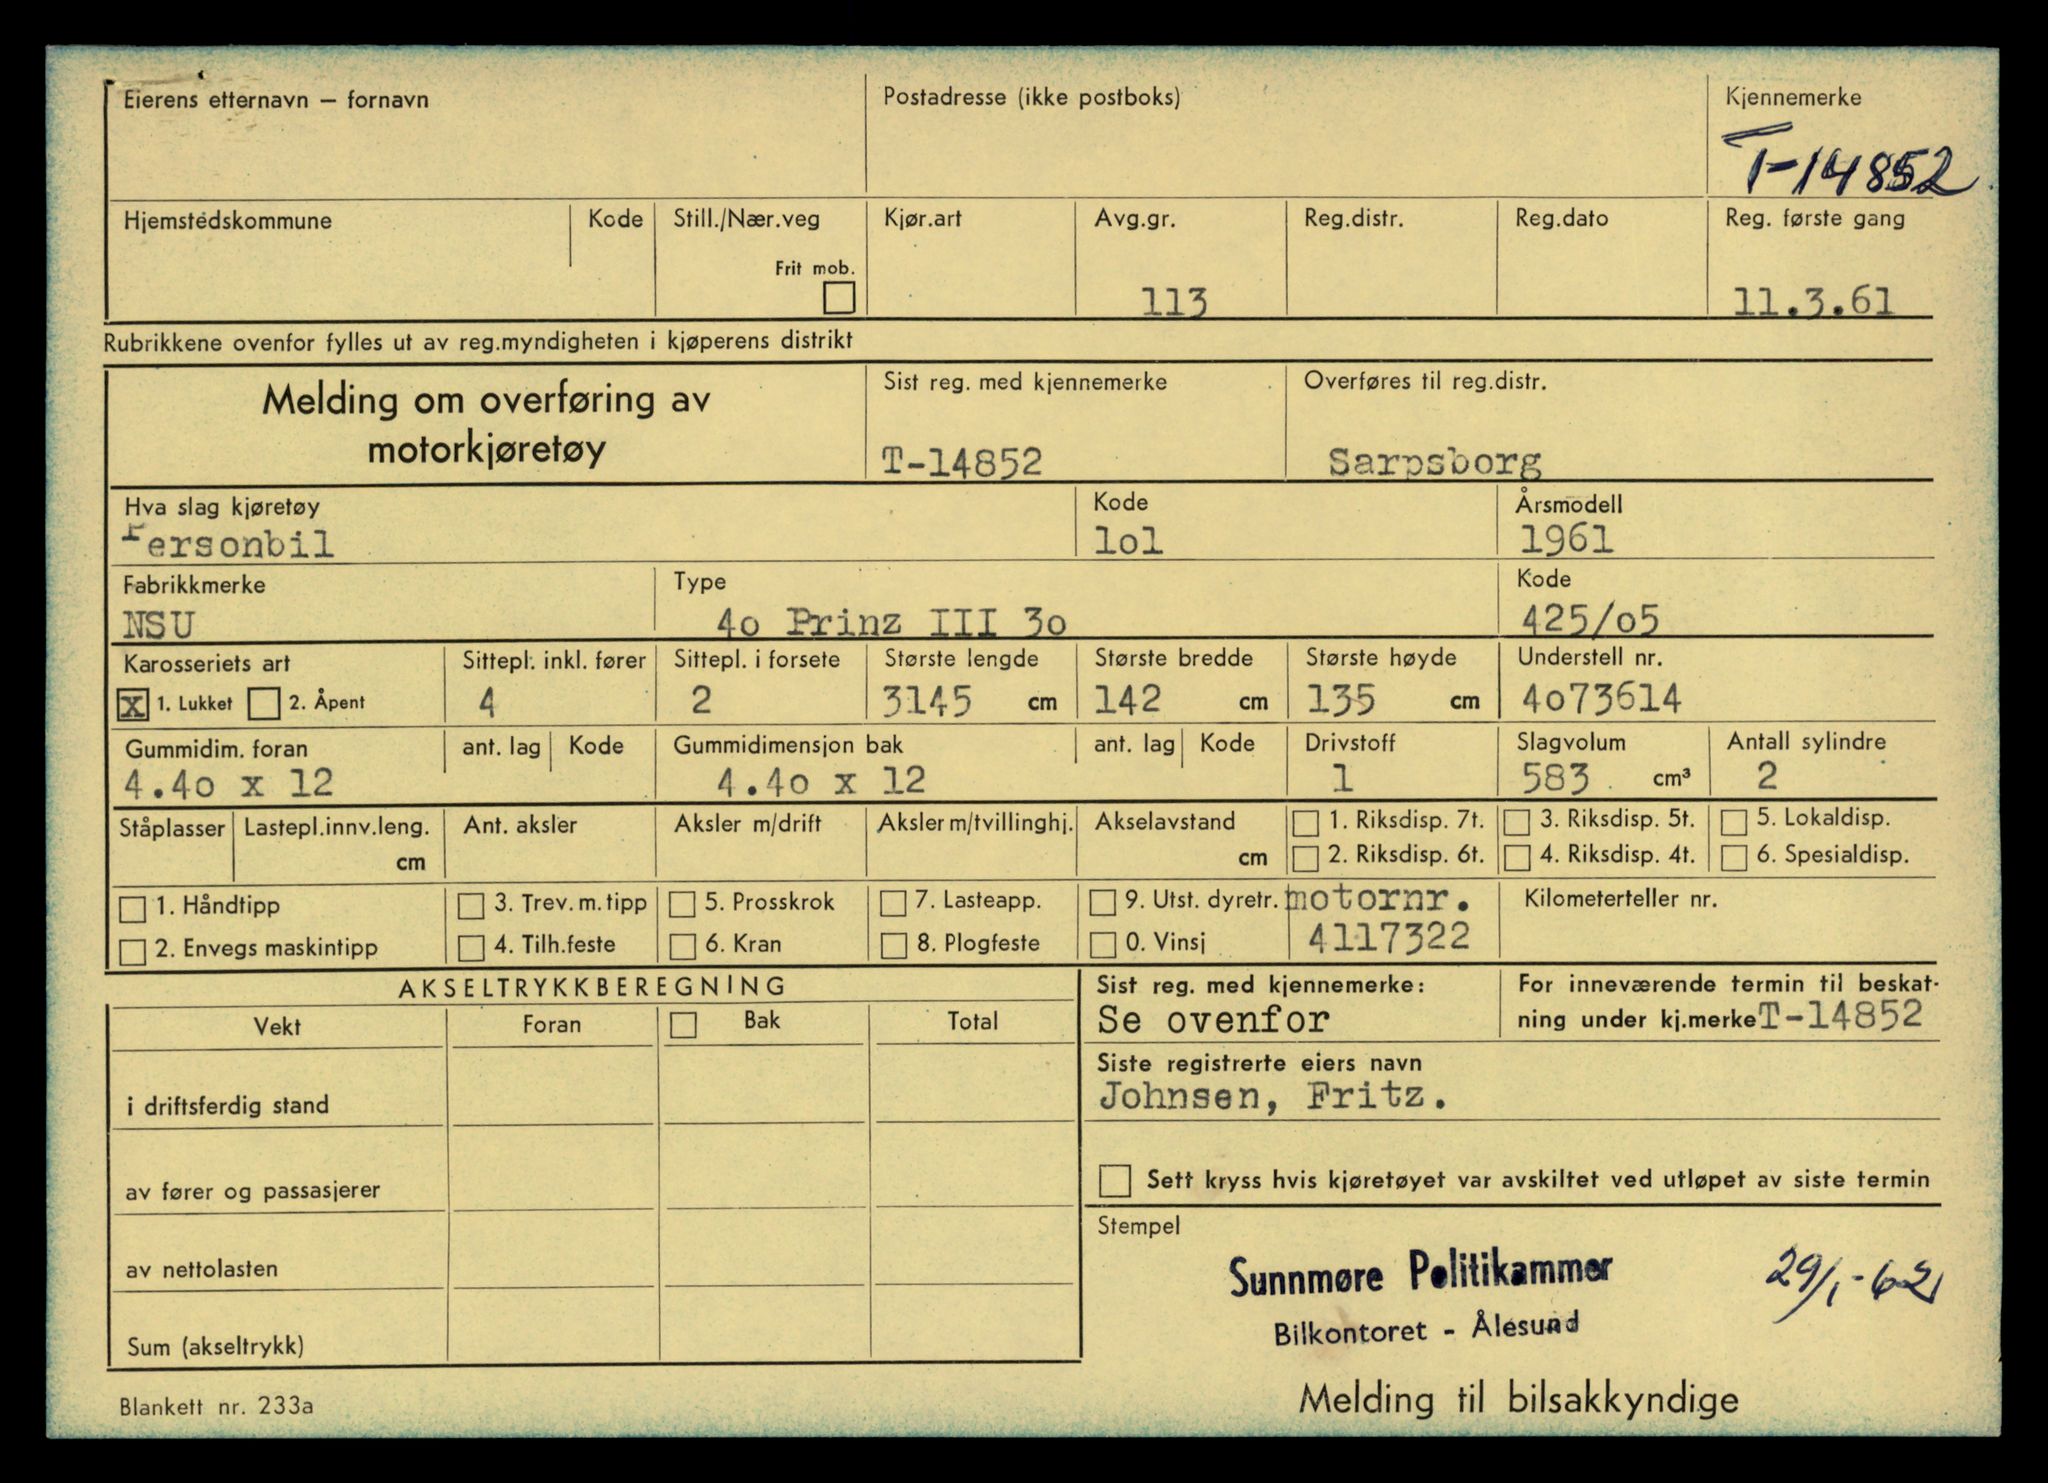 Eierens etternavn – fornavn
Postadresse (ikke postboks)
Kjennemerke
T-14852
Hjemstedskommune
Kode
Still./Nær.veg
Frit mob.
Kjør.art
Avg.gr.
113
Reg.distr.
Reg.dato
Reg. første gang
11.3.61
Rubrikkene ovenfor fylles ut av reg.myndigheten i kjøperens distrikt
Melding om overføring av
motorkjøretøy
Sist reg. med kjennemerke
T-14852
Overføres til reg.distr.
Sarpsborg
Hva slag kjøretøy
Personbil
Kode
lol
Årsmodell
1961
Fabrikkmerke
NSU
Type
4o Prinz III 3o
Kode
425/o5
Karosseriets art
X 1. Lukket 2. Åpent
Sittepl. inkl. fører
4
Sittepl. i forsete
2
Største lengde
3145 cm
Største bredde
142 cm
Største høyde
135 cm
Understell nr.
4o73614
Gummidim. foran
4.4o x 12
ant. lag
Kode
Gummidimensjon bak
4.4o x 12
ant. lag
Kode
Drivstoff
1
Slagvolum
583 cm³
Antall sylindre
2
Ståplasser
Lastepl.innv.leng.
cm
Ant. aksler
Aksler m/drift
Aksler m/tvillinghj.
Akselavstand
cm
1. Riksdisp. 7t.
2. Riksdisp. 6t.
3. Riksdisp. 5t.
4. Riksdisp. 4t.
5. Lokaldisp.
6. Spesialdisp.
1. Håndtipp
2. Envegs maskintipp
3. Trev. m. tipp
4. Tilh.feste
5. Prosskrok
6. Kran
7. Lasteapp.
8. Plogfeste
9. Utst. dyretr.
0. Vinsj
motornr.
4117322
Kilometerteller nr.
AKSELTRYKKBEREGNING
Vekt
Foran
Bak
Total
i driftsferdig stand
av fører og passasjerer
av nettolasten
Sum (akseltrykk)
Sist reg. med kjennemerke:
Se ovenfor
For inneværende termin til beskat-
ning under kj.merke T-14852
Siste registrerte eiers navn
Johnsen, Fritz.
Sett kryss hvis kjøretøyet var avskiltet ved utløpet av siste termin
Stempel
Sunnmøre Politikammer
Bilkontoret - Ålesund
29/1-62
Blankett nr. 233a
Melding til bilsakkyndige